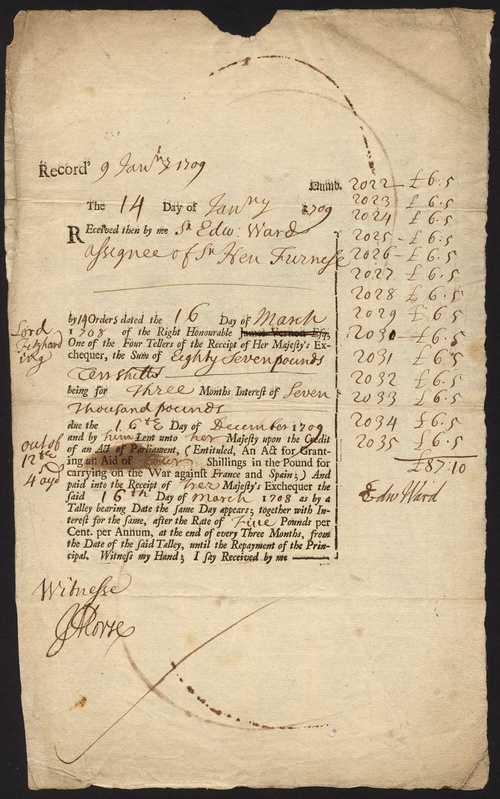 Record' 9 Jan'ry 1709
The 14 Day of Jan'ry 1709
REceived then by me Sr Edw: Ward
Assignee of Sr Hen Furnese
by 14 Orders dated the 16 Day of March
1708 of the Right Honourable James Vernon Esq;
Lord
One of the Four Tellers of the Receipt of Her Majesty's Ex-
chequer, the Sum of Eighty Seven pounds
Tenn shills
being for Three Months Interest of Seven
Thousand pounds
due the 16th Day of December 1709
and by him Lent unto her Majesty upon the Credit
of an Act of Parliament, (Entituled, An Act for Grant-
ing an Aid of Four Shillings in the Pound for
carrying on the War against France and Spain;) And
paid into the Receipt of her Majesty's Exchequer the
said 16th Day of March 1708 as by a
Talley bearing Date the same Day appears; together with In-
terest for the same, after the Rate of Five Pounds per
Cent. per Annum, at the end of every Three Months, from
the Date of the said Talley, until the Repayment of the Prin-
cipal. Witness my Hand; I say Received by me
out of
12th
4 ayd
Numb. 2022 £6.5
2023 £6.5
2024 £6.5
2025 - £6.5
2026 - £6.5
2027 £6.5
2028 £6.5
2029 £6.5
2030 £6.5
2031 £6.5
2032 £6.5
2033 £6.5
2034 £6.5
2035 £6.5
£87.10
Edw Ward
Witnesse